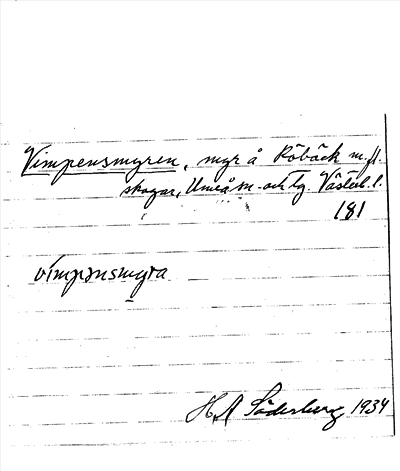 Vimpensmyren, myr å Röbäck m.fl.
skogar, Umeå sn. och tg. Västerb. l.
181
vimpənsmyra
H A Söderberg 1934